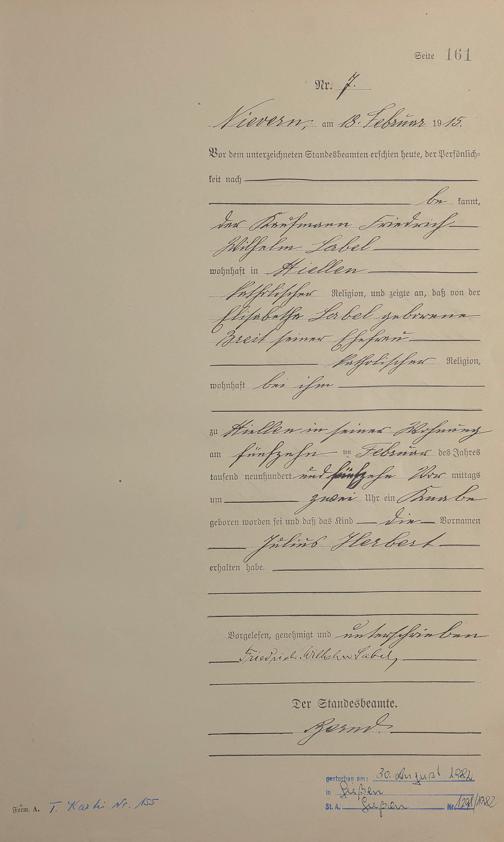 Seite 161
Nr. 7.
Nievern, am 18. Februar 1915.
Vor dem unterzeichneten Standesbeamten erschien heute, der Persönlich-
keit nach
be kannt,
der Kaufmann Friedrich
Wilhelm Label
wohnhaft in
katholischer Religion, und zeigte an, daß von der
Elisabetha Label geborene
Breit seiner Ehefrau
katholischer Religion,
wohnhaft bei ihm
zu in seiner Wohnung
am fünfzehn ten Februar des Jahres
tausend neunhundert und fünfzehn Vor mittags
um zwei Uhr ein Knabe
geboren worden sei und daß das Kind die Vornamen
Julius Herbert
erhalten habe.
Vorgelesen, genehmigt und unterschrieben
Friedrich Wilhelm Label,
Der Standesbeamte.
gestorben am: 30. August 1982
in Gießen
St. A. Gießen Nr. 1982
Form. A. T. Kartei Nr. 155